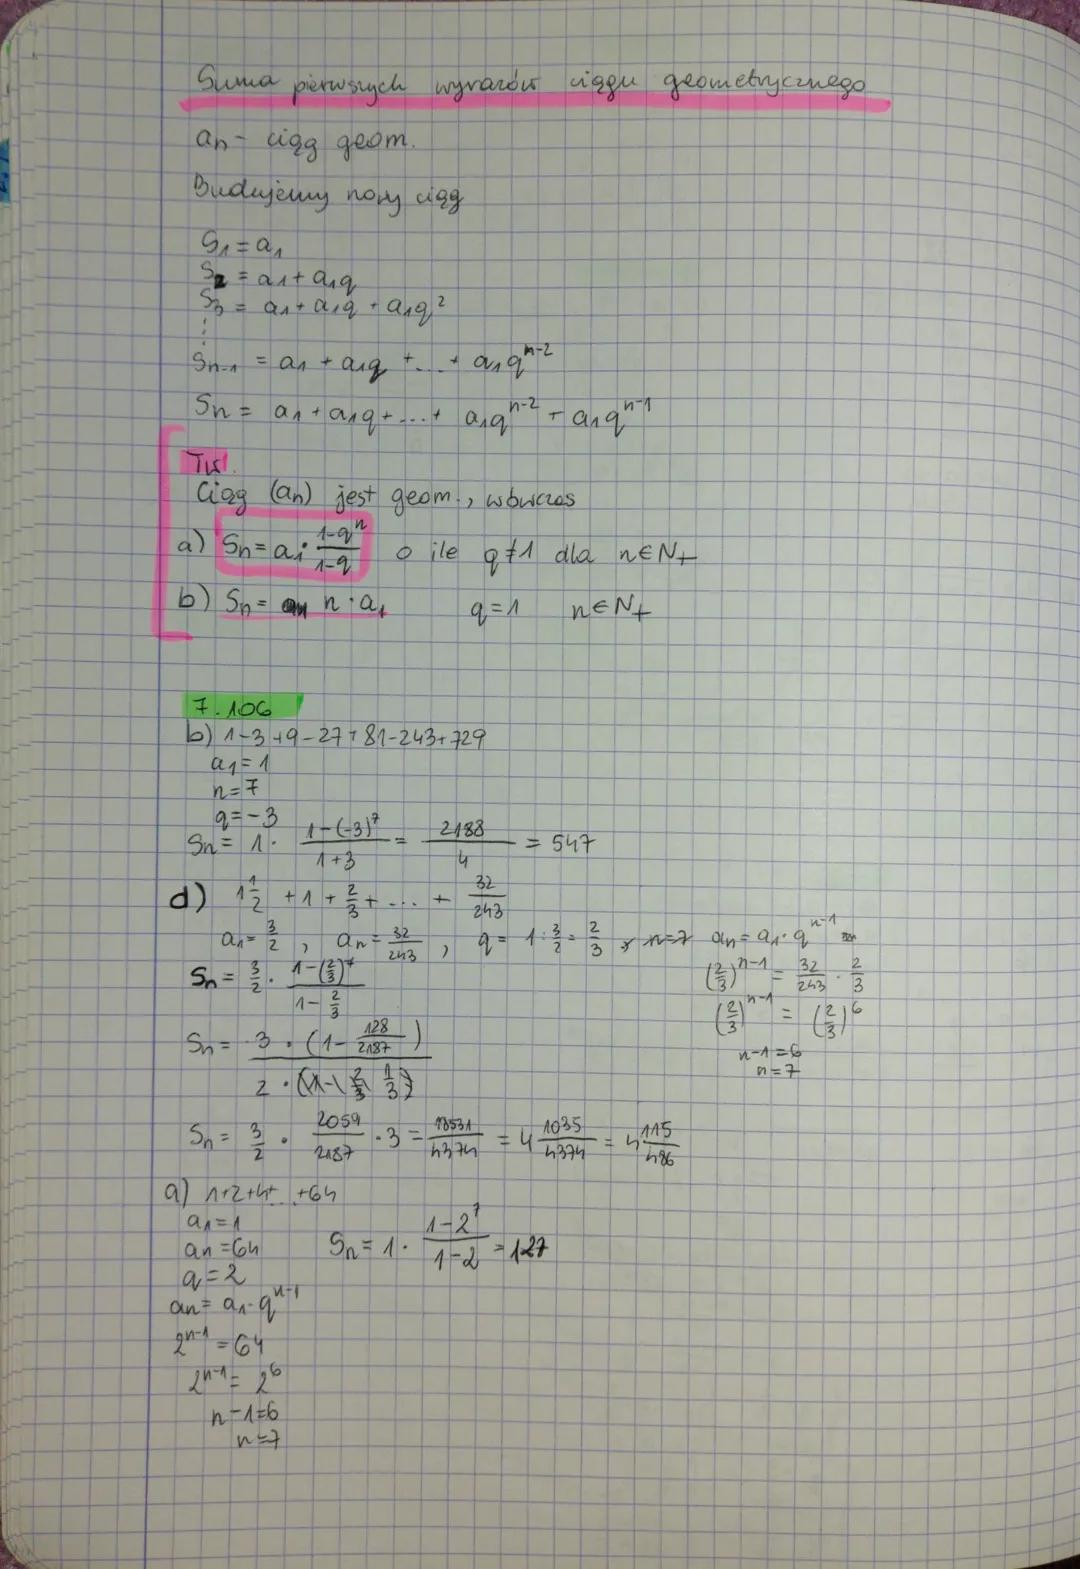 Suma pierwszych wyrazów ciągu geometrycznego
an - ciąg geom.
Budujemy nowy ciąg
S₁ = a₁
S₂ = a₁ + a₁q
S₃ = a₁ + a₁q + a₁q²
⋮
Sn-1 = a₁ + a₁q + ... + a₁qⁿ⁻²
Sn = a₁ + a₁q + ... + a₁qⁿ⁻² + a₁qⁿ⁻¹
Tw.
Ciąg (an) jest geom., wówczas
a) Sn = a₁ · (1-qⁿ)/(1-q) o ile q≠1 dla n∈N₊
b) Sn = n · a₁ q=1 n∈N₊
7.106
b) 1-3+9-27+81-243+729
a₁ = 1
n = 7
q = -3
Sn = 1 · (1-(-3)⁷)/(1+3) = 2188/4 = 547
d) 1 1/2 + 1 + 2/3 + ... + 32/243
a₁ = 3/2, an = 32/243, q = 1 : 3/2 = 2/3, n=7 an = a₁ · qⁿ⁻¹
Sn = 3/2 · (1-(2/3)⁷)/(1-2/3)
(2/3)ⁿ⁻¹ = 32/243 · 2/3
(2/3)ⁿ⁻¹ = (2/3)⁶
n-1=6
n=7
Sn = 3 · (1 - 128/2187) / 2 · (1/3)
Sn = 3/2 · 2059/2187 · 3 = 18531/4374 = 4 1035/4374 = 4 115/486
a) 1+2+4+...+64
a₁ = 1
an = 64 Sn = 1 · (1-2⁷)/(1-2) = 127
q = 2
an = a₁ · qⁿ⁻¹
2ⁿ⁻¹ = 64
2ⁿ⁻¹ = 2⁶
n-1=6
n=7